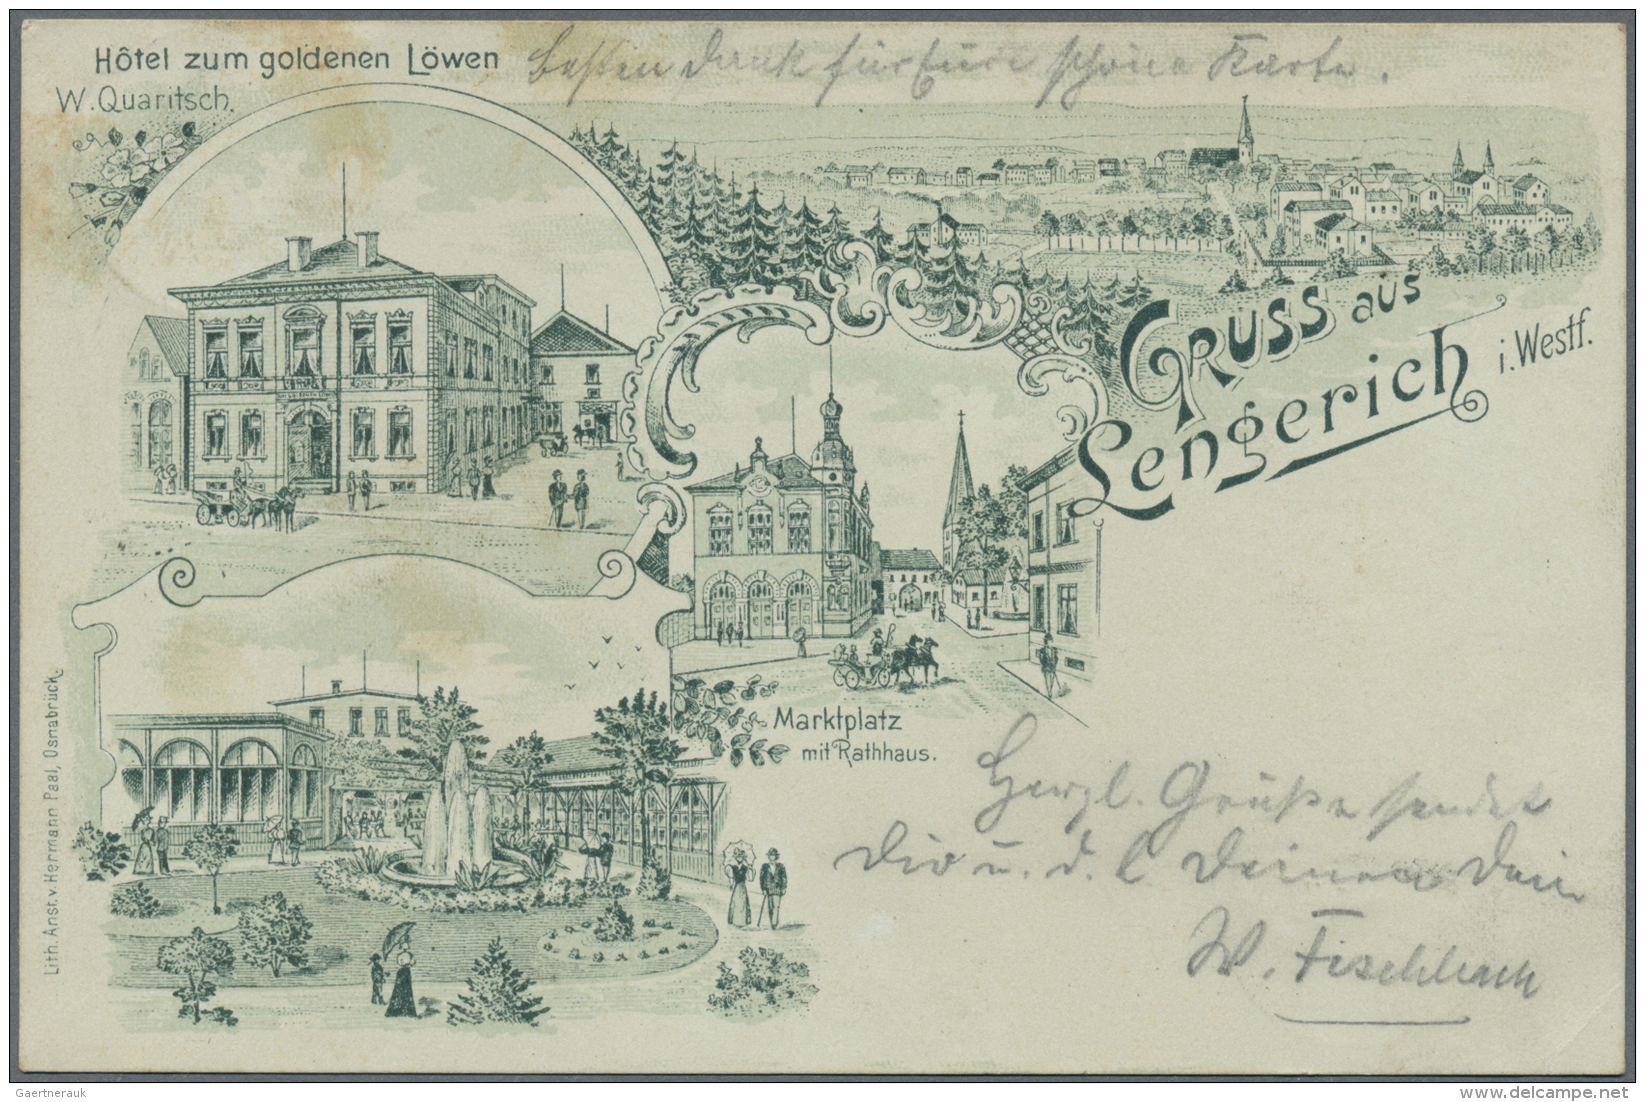 Hôtel zum goldenen Löwen
W. Quaritsch.
besten Dank für Eure schöne Karte.
GRUSS aus
Lengerich i. Westf.
Marktplatz
mit Rathhaus.
Herzl. Grüße sendet
Dir u. d. l. Deinen Dein
W. Fischbach
Lith. Anst. v. Herrmann Paal, Osnabrück.
Gaertnerauk
delcampe.net